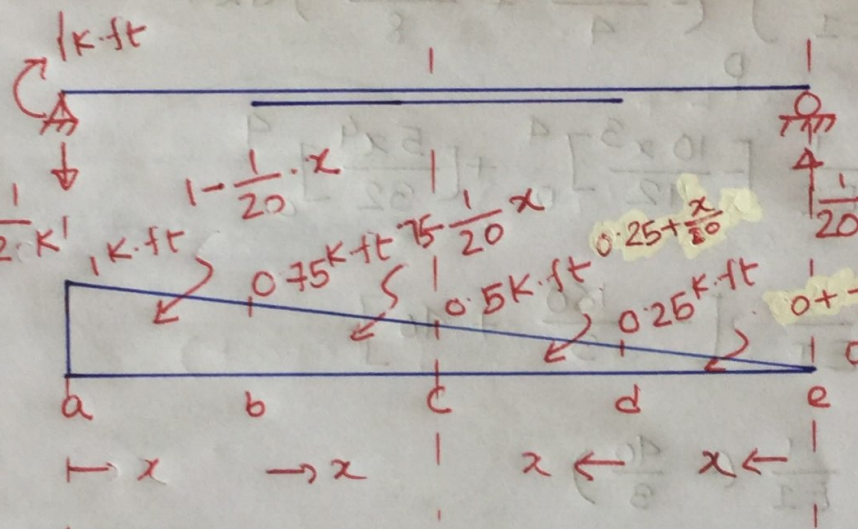 1k.ft
1
1
1 - 1/20 . x
1
1/20
K'
1 k.ft
0.75 K.ft
.75 - 1/20 x
0.5 K.ft
0.25 + x/20
0.25 K.ft
0+
a b c d e
x → x x ← x ←